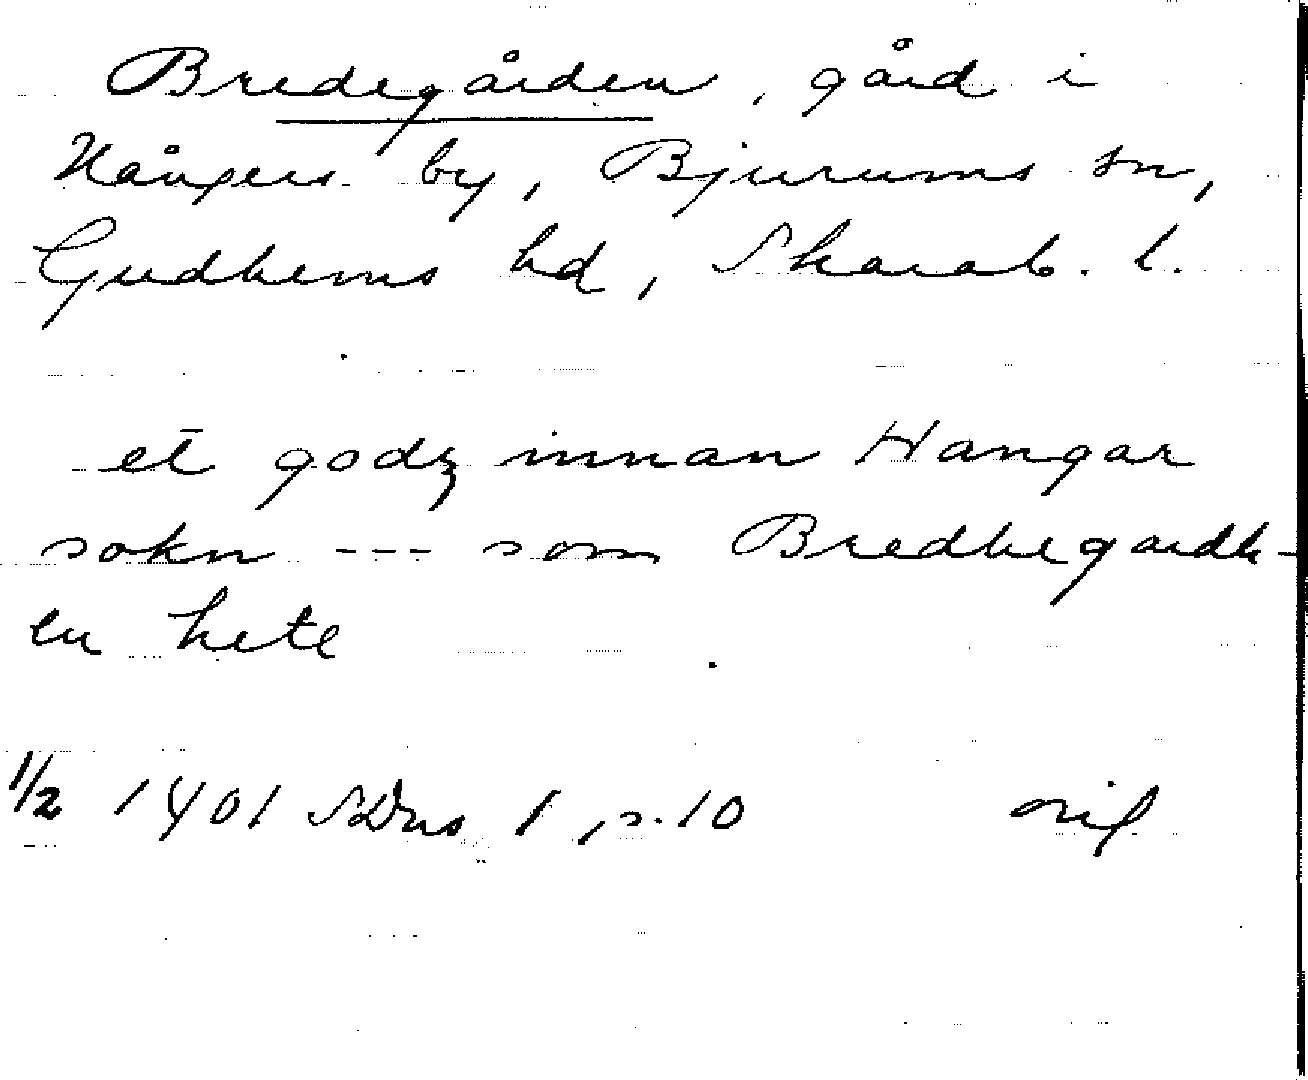 Bredegården, gård i
Hångers by, Bjurums sn,
Gudhems hd, Skarab. l.
et godz innan Hangar
sokn --- som Bredhegardh-
en hete
1/2 1401 SDns 1, s. 10 orig